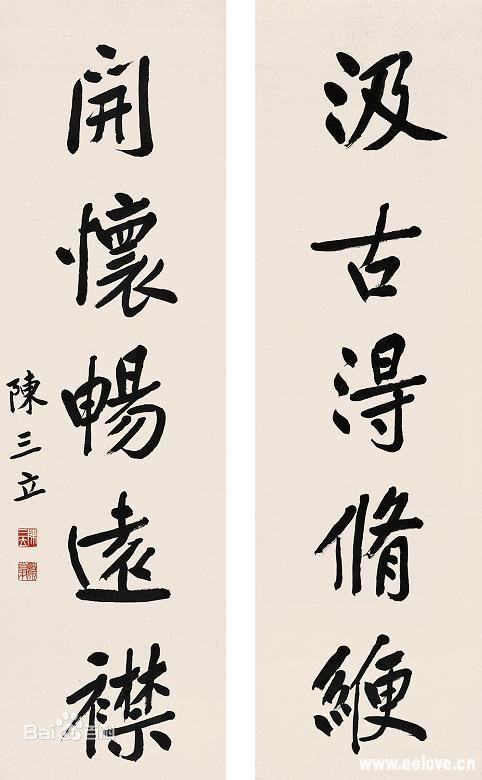 汲古淂脩綆
開懷暢遠襟
陳三立
Bai百科
www.eelove.cn